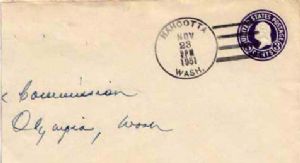 NAHCOTTA
NOV
23
PM
1951
WASH.
UNITED STATES POSTAGE
Commission
Olympia, Wash